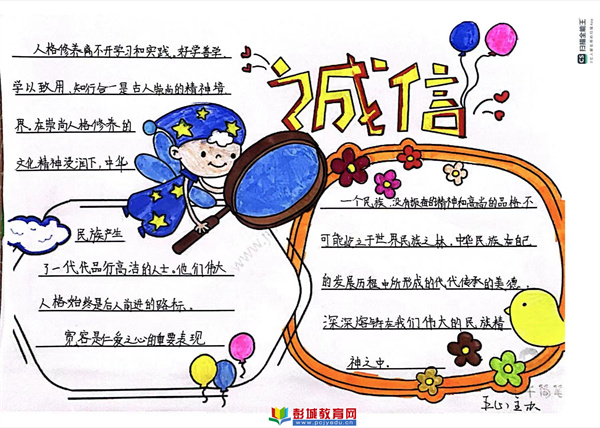 诚信
人格修养离不开学习和实践。好学善学
学以致用，知行合一是古人崇尚的精神境
界。在崇尚人格修养的
文化精神浸润下，中华
民族产生
了一代代品行高洁的人士。他们伟大
人格始终是后人前进的路标。
宽容是仁爱之心的重要表现
一个民族，没有振奋的精神和高尚的品格，不
可能屹立于世界民族之林，中华民族在自己
的发展历程中所形成的代代传承的美德，
深深熔铸在我们伟大的民族精
神之中。
彭城教育网
www.pcjyedu.cn
扫描全能王